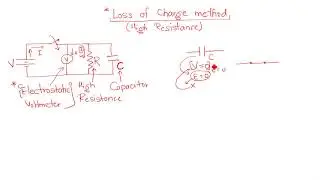 * Loss of Charge method
(High Resistance)
I
V
V
R
C
C
* Electrostatic
Voltmeter
High
Resistance
Capacitor